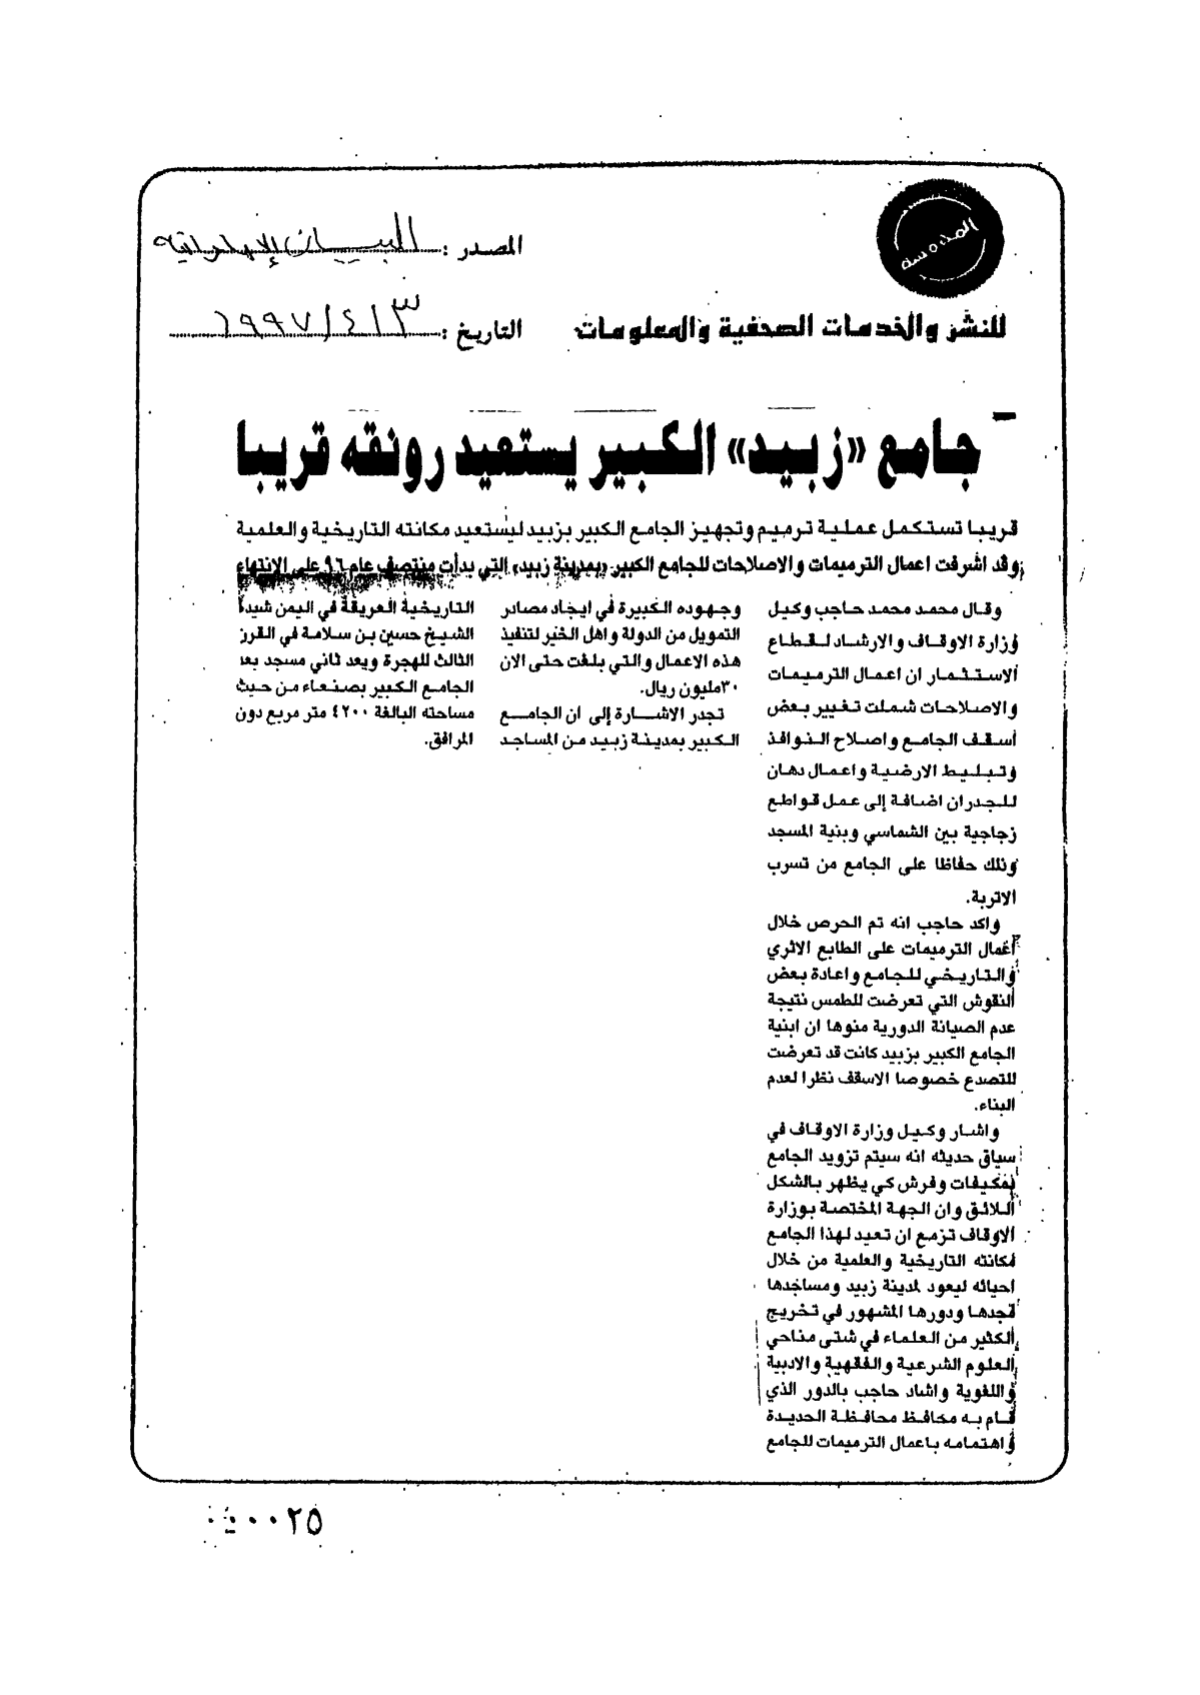 المصدر : البيان الإماراتية
للنشر والخدمات الصحفية والمعلومات
التاريخ : ٣ / ٤ / ١٩٩٧
جامع «زبيد» الكبير يستعيد رونقه قريبا
قريبا تستكمل عملية ترميم وتجهيز الجامع الكبير بزبيد ليستعيد مكانته التاريخية والعلمية
وقد اشرفت اعمال الترميمات والاصلاحات للجامع الكبير «بمدينة زبيد» التي بدأت منتصف عام ٩٦ على الانتهاء
وقال محمد محمد حاجب وكيل
وزارة الاوقاف والارشاد لقطاع
الاستثمار ان اعمال الترميمات
والاصلاحات شملت تغيير بعض
أسقف الجامع واصلاح النوافذ
وتبليط الارضية واعمال دهان
للجدران اضافة إلى عمل قواطع
زجاجية بين الشماسي وبنية المسجد
وذلك حفاظا على الجامع من تسرب
الاتربة.
واكد حاجب انه تم الحرص خلال
أعمال الترميمات على الطابع الاثري
والتاريخي للجامع واعادة بعض
النقوش التي تعرضت للطمس نتيجة
عدم الصيانة الدورية منوها ان ابنية
الجامع الكبير بزبيد كانت قد تعرضت
للتصدع خصوصا الاسقف نظرا لعدم
البناء.
واشار وكيل وزارة الاوقاف في
سياق حديثه انه سيتم تزويد الجامع
بمكيفات وفرش كي يظهر بالشكل
اللائق وان الجهة المختصة بوزارة
الاوقاف تزمع ان تعيد لهذا الجامع
مكانته التاريخية والعلمية من خلال
احيائه ليعود لمدينة زبيد ومساجدها
مجدها ودورها المشهور في تخريج
الكثير من العلماء في شتى مناحي
العلوم الشرعية والفقهية والادبية
واللغوية واشاد حاجب بالدور الذي
قام به محافظ محافظة الحديدة
واهتمامه باعمال الترميمات للجامع
وجهوده الكبيرة في ايجاد مصادر
التمويل من الدولة واهل الخير لتنفيذ
هذه الاعمال والتي بلغت حتى الان
٣٠مليون ريال.
تجدر الاشارة إلى ان الجامع
الكبير بمدينة زبيد من المساجد
التاريخية العريقة في اليمن شيده
الشيخ حسين بن سلامة في القرن
الثالث للهجرة ويعد ثاني مسجد بعد
الجامع الكبير بصنعاء من حيث
مساحته البالغة ٤٢٠٠ متر مربع دون
المرافق.